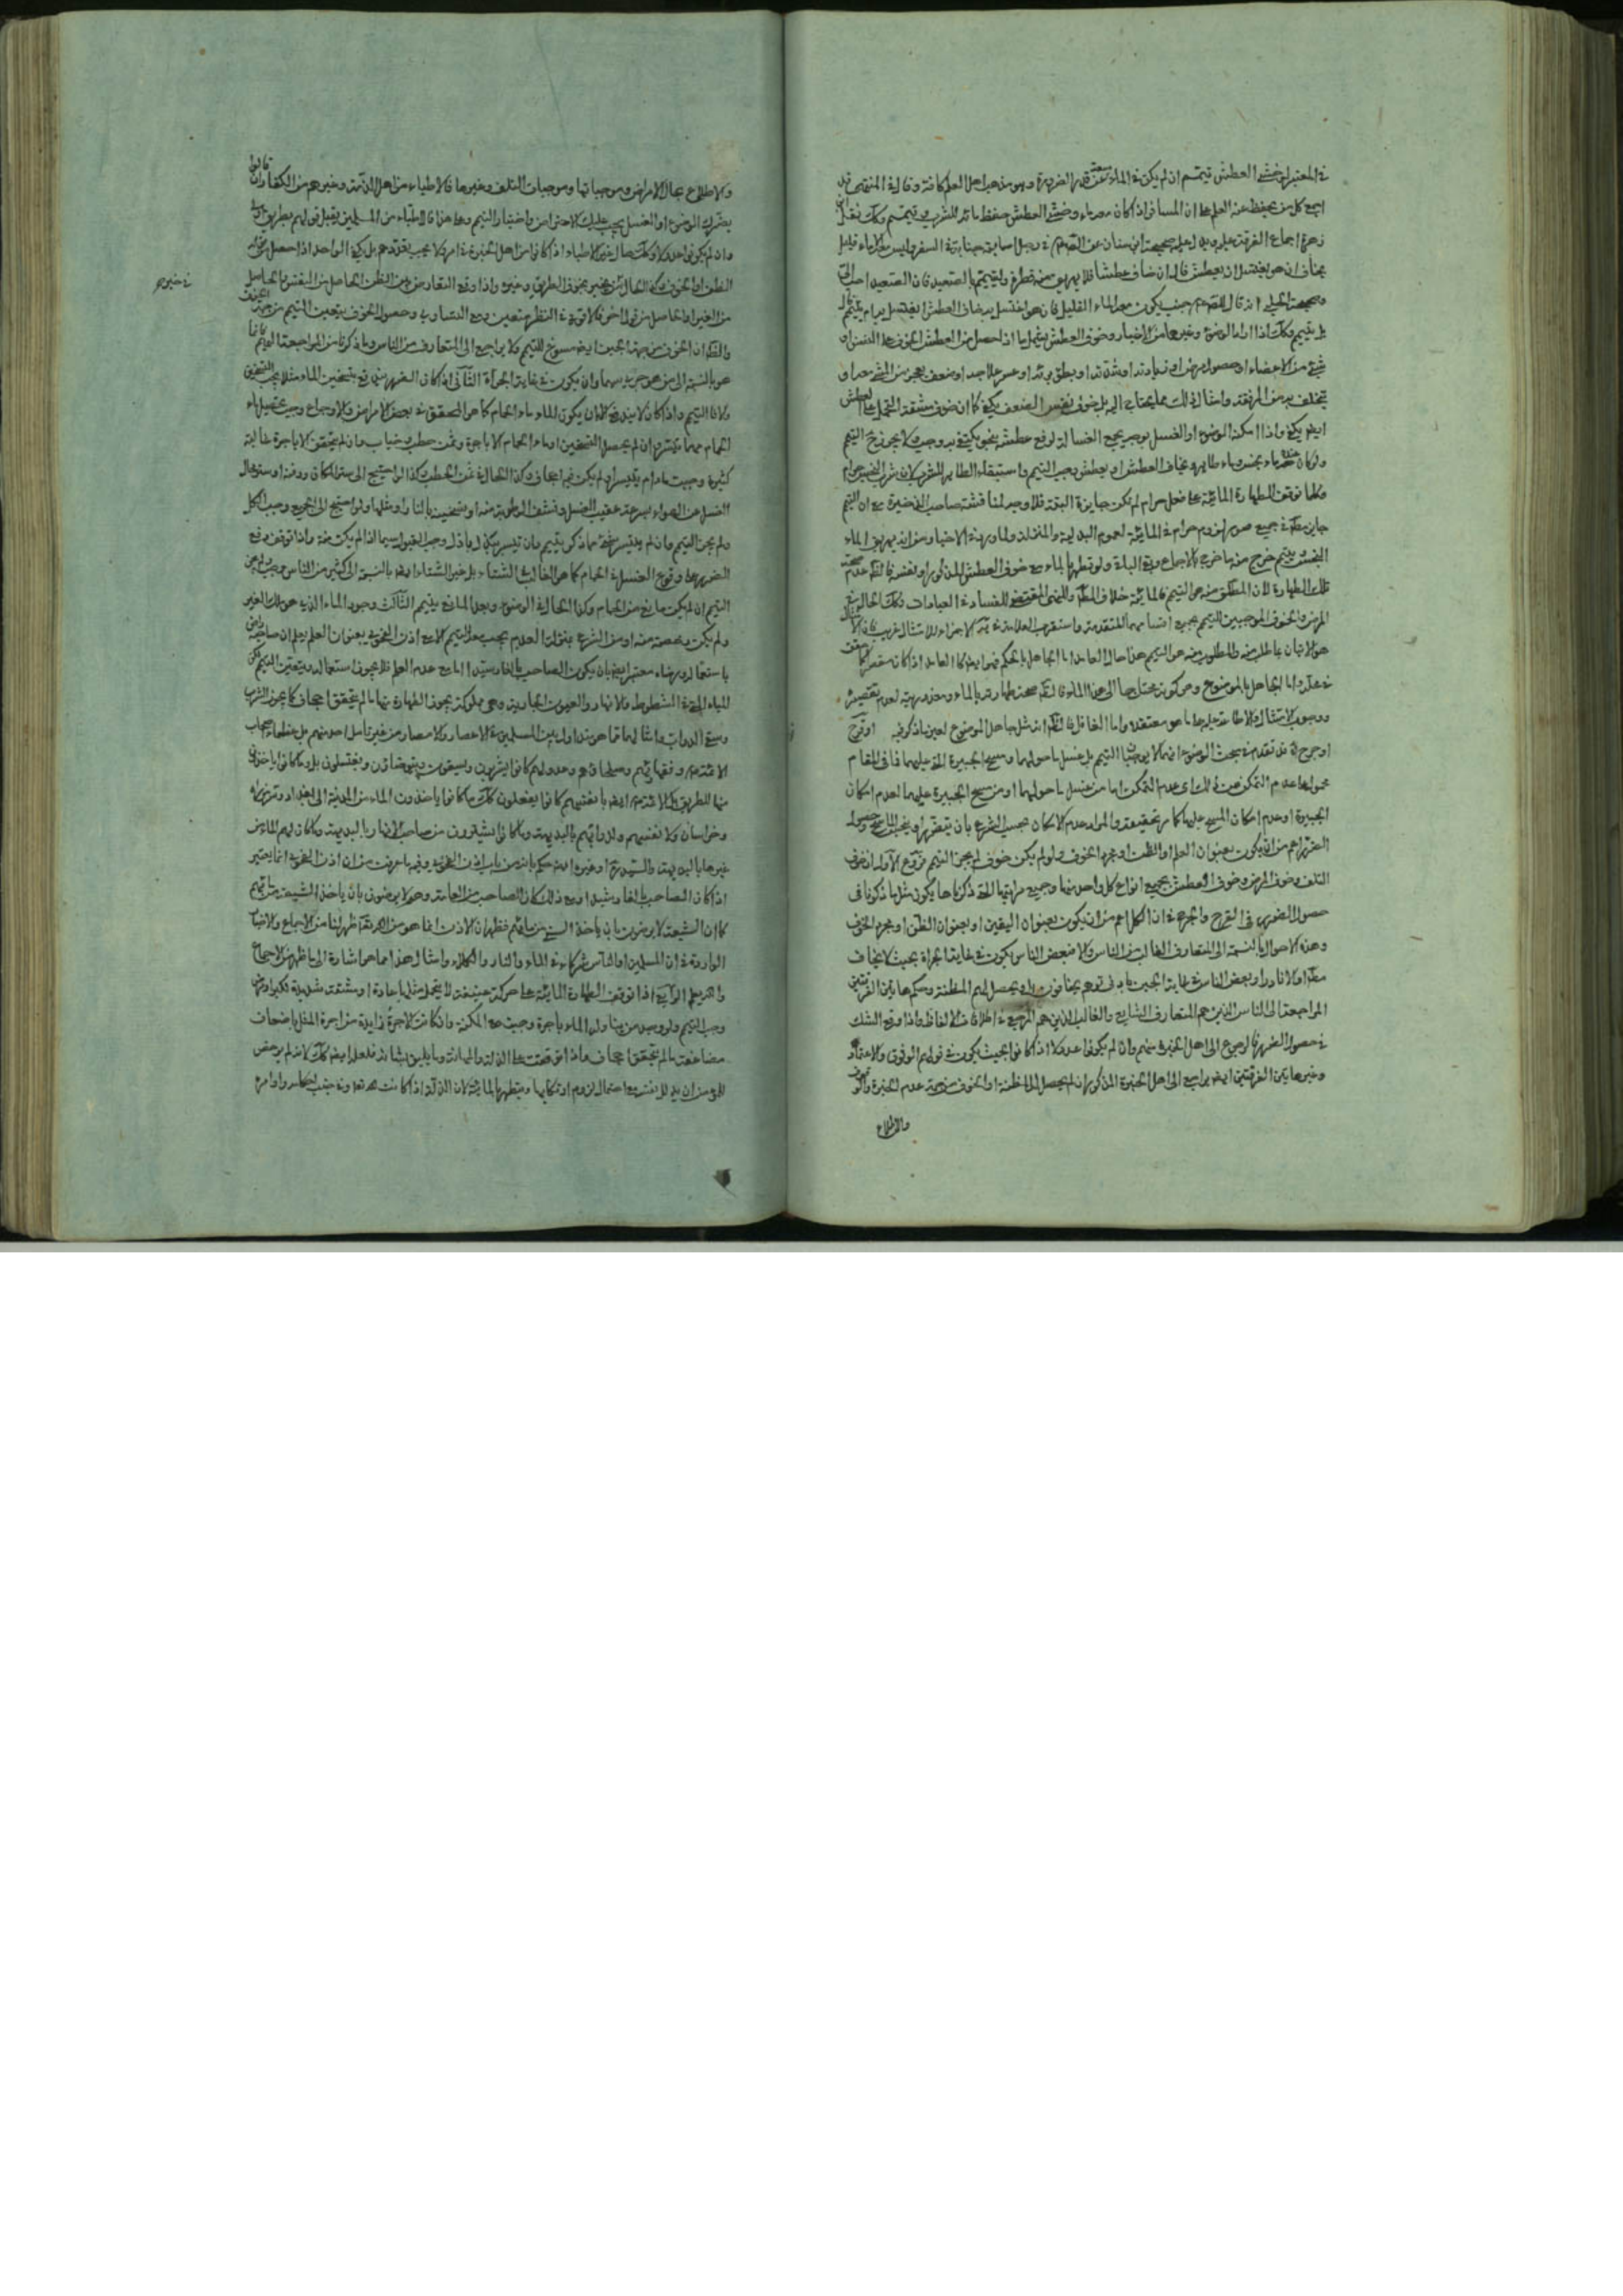 في المعتبر لو خشي العطش تيمم ان لم يكن في الماء سعة عن قدر الضرورة وهو مذهب اهل العلم كافة وقال في المنتهى قد
اجمع كل من يحفظ عنه العلم على ان المسافر اذا كان معه ماء وخشي العطش حفظ مائه للشرب وتيمم وكك نقل ابن
زهرة اجماع الفرقة عليه ويدل عليه صحيحة ابن سنان عن الصادق في رجل اصابته جنابة في السفر وليس معه الا ماء قليل
يخاف ان هو يغتسل ان يعطش قال ان خاف عطشا فلا يهريق منه قطرة وليتيمم بالصعيد فان الصعيد احب الى
وصحيحة الحلبي انه قال للصادق جنب يكون معه الماء القليل فان هو اغتسل به خاف العطش ايغتسل به ام يتيمم قال
بل يتيمم وكك اذا اراد الوضوء وغيرها من الاخبار وخوف العطش يشمل ما اذا حصل من العطش الخوف على النفس او
شيء من الاعضاء او حصول مرض او زيادته او شدته او بطؤ برئه او عسر علاجه او ضعف يعجز من المشي معه او
يتخلف به من الرفقة وامثال ذلك مما يحتاج اليه بل خوف نفس الضعف يكفي كما ان خوف مشقة التحمل على العطش
ايضا يكفي واذا امكنه الوضوء او الغسل بوجه يجمع الغسالة لرفع عطشه بنحو يكتفي به وجب ولا يجوز ح التيمم
ولو كان عنده ماء نجس وماء طاهر ويخاف العطش او يعطش يجب التيمم واستبقاء الطاهر للشرب لان شرب النجس حرام
وكلما توقف الطهارة المائية على فعل حرام لم تكن جايزة البتة فلا وجه لمناقشة صاحب الذخيرة مع ان التيمم
جايز مط في جميع صور لزوم حرام في المائية لعموم البدلية والمنزلة ولما ورد في الاخبار من انه يهريق الماء
النجس ويتيمم خرج منه ما خرج بالاجماع وبقي الباقي ولو تطهر بالماء مع خوف العطش المذكور او لنفسه فالظ عدم صحة
تلك الطهارة لان المطلق منه هو التيمم فالمائية خلاف المط والنهي المقتضي للفساد في العبادات وكك الحال في
المرض والخوف الموجبين للتيمم بجميع اقسامهما المتقدمة واستقرب العلامة في ية الاجزاء للامتثال غريب فان الامتثال
هو الاتيان بما طلب منه والمطلوب منه هو التيمم هذا حال العامد اما الجاهل بالحكم فهو ايضا كالعامد اذا كان مقصرا كما حقق
في محله واما الجاهل بالموضوع وهو كونه محتاجا الى هذا الماء فالظ صحة طهارته بالماء ومعذوريته لعدم تقصيره
ووجوب الامتثال والاطاعة عليه على ما هو معتقده واما الغافل فالظ انه مثل جاهل الموضوع لعين ما ذكر فيه او قرح
او جرح قد تقدم في بحث الوضوء انهما لا يوجبان التيمم بل غسل ما حولهما ومسح الجبيرة التي عليهما فما في المقام
محمول على عدم التمكن من ذلك اي عدم التمكن اما من غسل ما حولهما او من مسح الجبيرة عليهما لعدم امكان
الجبيرة او عدم امكان المسح عليها كما مر تحقيقه والمراد عدم الامكان بحسب الشرع بان يتضرر او ينجس الماسح وحصول
الضرر اعم من ان يكون بعنوان العلم او الظن او مجرد الخوف ولو لم يكن خوف لم يجز التيمم فروع الاول ان خوف
التلف وخوف المرض وخوف العطش بجميع انواع كل واحد منها وجميع مراتبها التي ذكرناها يكون مثل ما ذكرنا في
حصول الضرر في القرح والجرح في ان الكل اعم من ان يكون بعنوان اليقين او بعنوان الظن او مجرد الخوف
وهذه الاحوال بالنسبة الى المتعارف الغالب من الناس والا فبعض الناس يكون في غاية الجراة بحيث لا يخاف
مط او الا نادرا وبعض الناس في غاية الجبن بادنى توهم يخافون بل ويحصل لهم المظنة وحكم هاتين الفرقتين
المراجعة الى الناس الذين هم المتعارف الشايع والغالب الذين هم المرجع في اطلاقات الالفاظ واذا وقع الشك
في حصول الضرر فالرجوع الى اهل الخبرة منهم وان لم يكونوا عدولا اذا كانوا بحيث يكون في قولهم الوثوق والاعتماد
وغيرهاتين الفرقتين ايضا يراجع الى اهل الخبرة المذكور ان لم يحصل له المظنة او الخوف من جهة عدم الخبرة
والاطلاع
والاطلاع بحال الامراض وموجباتها وموجبات التلف وغيرها فالاطباء من اهل الذمة وغيرهم من الكفار ان قالوا
يضرك الوضوء او الغسل يجب عليك الاحتراز واختيار التيمم وعلى هذا فالاطباء من المسلمين يقبل قولهم بطريق اولى
وان لم يكونوا عدولا وكك حال غير الاطباء اذا كانوا من اهل الخبرة في امر ولا يجب تعددهم بل يكفي الواحد اذا حصل من قوله
الظن او الخوف وكذا الحال في مخبر بخوف الطريق وغيره واذا وقع التعارض بين الظن الحاصل من النفس والحاصل
من الغير او الحاصل من قول اخر فالاقوى في النظر متعين ومع التساوي وحصول الخوف يتعين التيمم من جهة الخوف
والظ ان الخوف من جهة الجبن ايضا مسوغ للتيمم ولا يراجع الى المتعارف من الناس وما ذكرنا من المراجعة اليهم فانما
هو بالنسبة الى من هو جريء سيما وان يكون في غاية الجراة الثاني اذا كان الضرر يرتفع بتسخين الماء مثلا يجب التسخين
ولا فالتيمم واذا كان لا يندفع الا بان يكون الماء ماء الحمام كما هو المحقق في بعض الامراض والاوجاع وجب تحصيل ماء
الحمام مهما تيسر وان لم يحصل التسخين او ماء الحمام الا باجرة وثمن حطب وجب وان لم يتحقق الا باجرة غالبة
كثيرة وجبت مادام يتيسر او لم يكن فيه اجحاف وكذا الحال في ثمن الحطب وكذا لو احتيج الى ستر المكان ودفئه او ستر حال
الغسل عن الهواء بسرعة عقيب الغسل ونشف الرطوبة منه او تسخينه بالنار او مثلها ولو احتيج الى الجميع وجب الكل
ولم يجز التيمم وان لم يتيسر شيء مما ذكر يتيمم وان تيسر ببذل باذل وجب القبول سيما اذا لم يكن منة واذا توقف رفع
الضرر على وقوع الغسل في الحمام كما هو الغالب في الشتاء بل غير الشتاء ايضا بالنسبة الى كثير من الناس وجب ولم يجز
التيمم ان لم يكن مانع من الحمام وكذا الحال في الوضوء وبعد المانع يتيمم الثالث وجود الماء الذي هو ملك الغير
ولم يكن رخصة منه او من الشرع بمنزلة العدم يجب معه التيمم الا مع اذن الفحوى بعنوان العلم يعلم ان صاحبه راض
باستعماله ورضاه معتبر ايضا بان يكون الصاحب بالغا رشيدا اما مع عدم العلم فلا يجوز استعماله ويتعين التيمم لكن
المياه التي في الشطوط والانهار والعيون الجارية وهي مملوكة يجوز الطهارة منها ما لم يتحقق اجحاف كما يجوز الشرب
وسقي الدواب وامثالهما مما هو متداول بين المسلمين في الاعصار والامصار من غير تامل احد منهم بل عظماء اصحاب
الائمة وفقهائهم وصلحائهم وعدولهم كانوا يشربون ويسقون ويتوضئون ويغتسلون بل وكانوا ياخذون
منها للطريق بل الائمة ايضا بانفسهم كانوا يفعلون كك وكانوا ياخذون الماء من المدينة الى بغداد وسر من راى
وخراسان ولانفسهم ولدوابهم بالبديهة وما كانوا يستاذنون من صاحب الانهار بالبديهة وما كان لهم الماء من
غيرها بالبديهة والشهيد وغيره ايضا حكم بانه من باب اذن الفحوى وفيه ما عرفت من ان اذن الفحوى انما يعتبر
اذا كان الصاحب بالغا رشيدا ومع ذلك كان الصاحب من العامة وهو لا يرضون بان ياخذ الشيعة من مائهم
كما ان الشيعة لا يرضون بان ياخذ السني من مائهم فظهر ان الاذن انما هو من الله تعالى ظهر لنا من الاجماع والاخبار
الواردة في ان المسلمين او الناس شركاء في الماء والنار والكلاء وامثال هذا مما هو اشارة الى ما ظهر من الاجماع
والله يعلم الرابع اذا توقف الطهارة المائية على حركة عنيفة لا يتحمل مثلها عادة او مشقة شديدة لكبر او مرض
وجب التيمم ولو وجد من يناوله الماء باجرة وجبت مع المكنة وان كانت الاجرة زايدة من اجرة المثل باضعاف
مضاعفة ما لم يتحقق اجحاف واذا توقفت على الذلة والمهانة وما يليق بشانه فلعله ايضا كك لانه لم يرخص
المؤمن ان يذل نفسه مع احتمال لزوم ارتكابها ويتطهر بالمائية لان الذلة اذا كانت لله تعالى وفي جنب احكامه واوامره